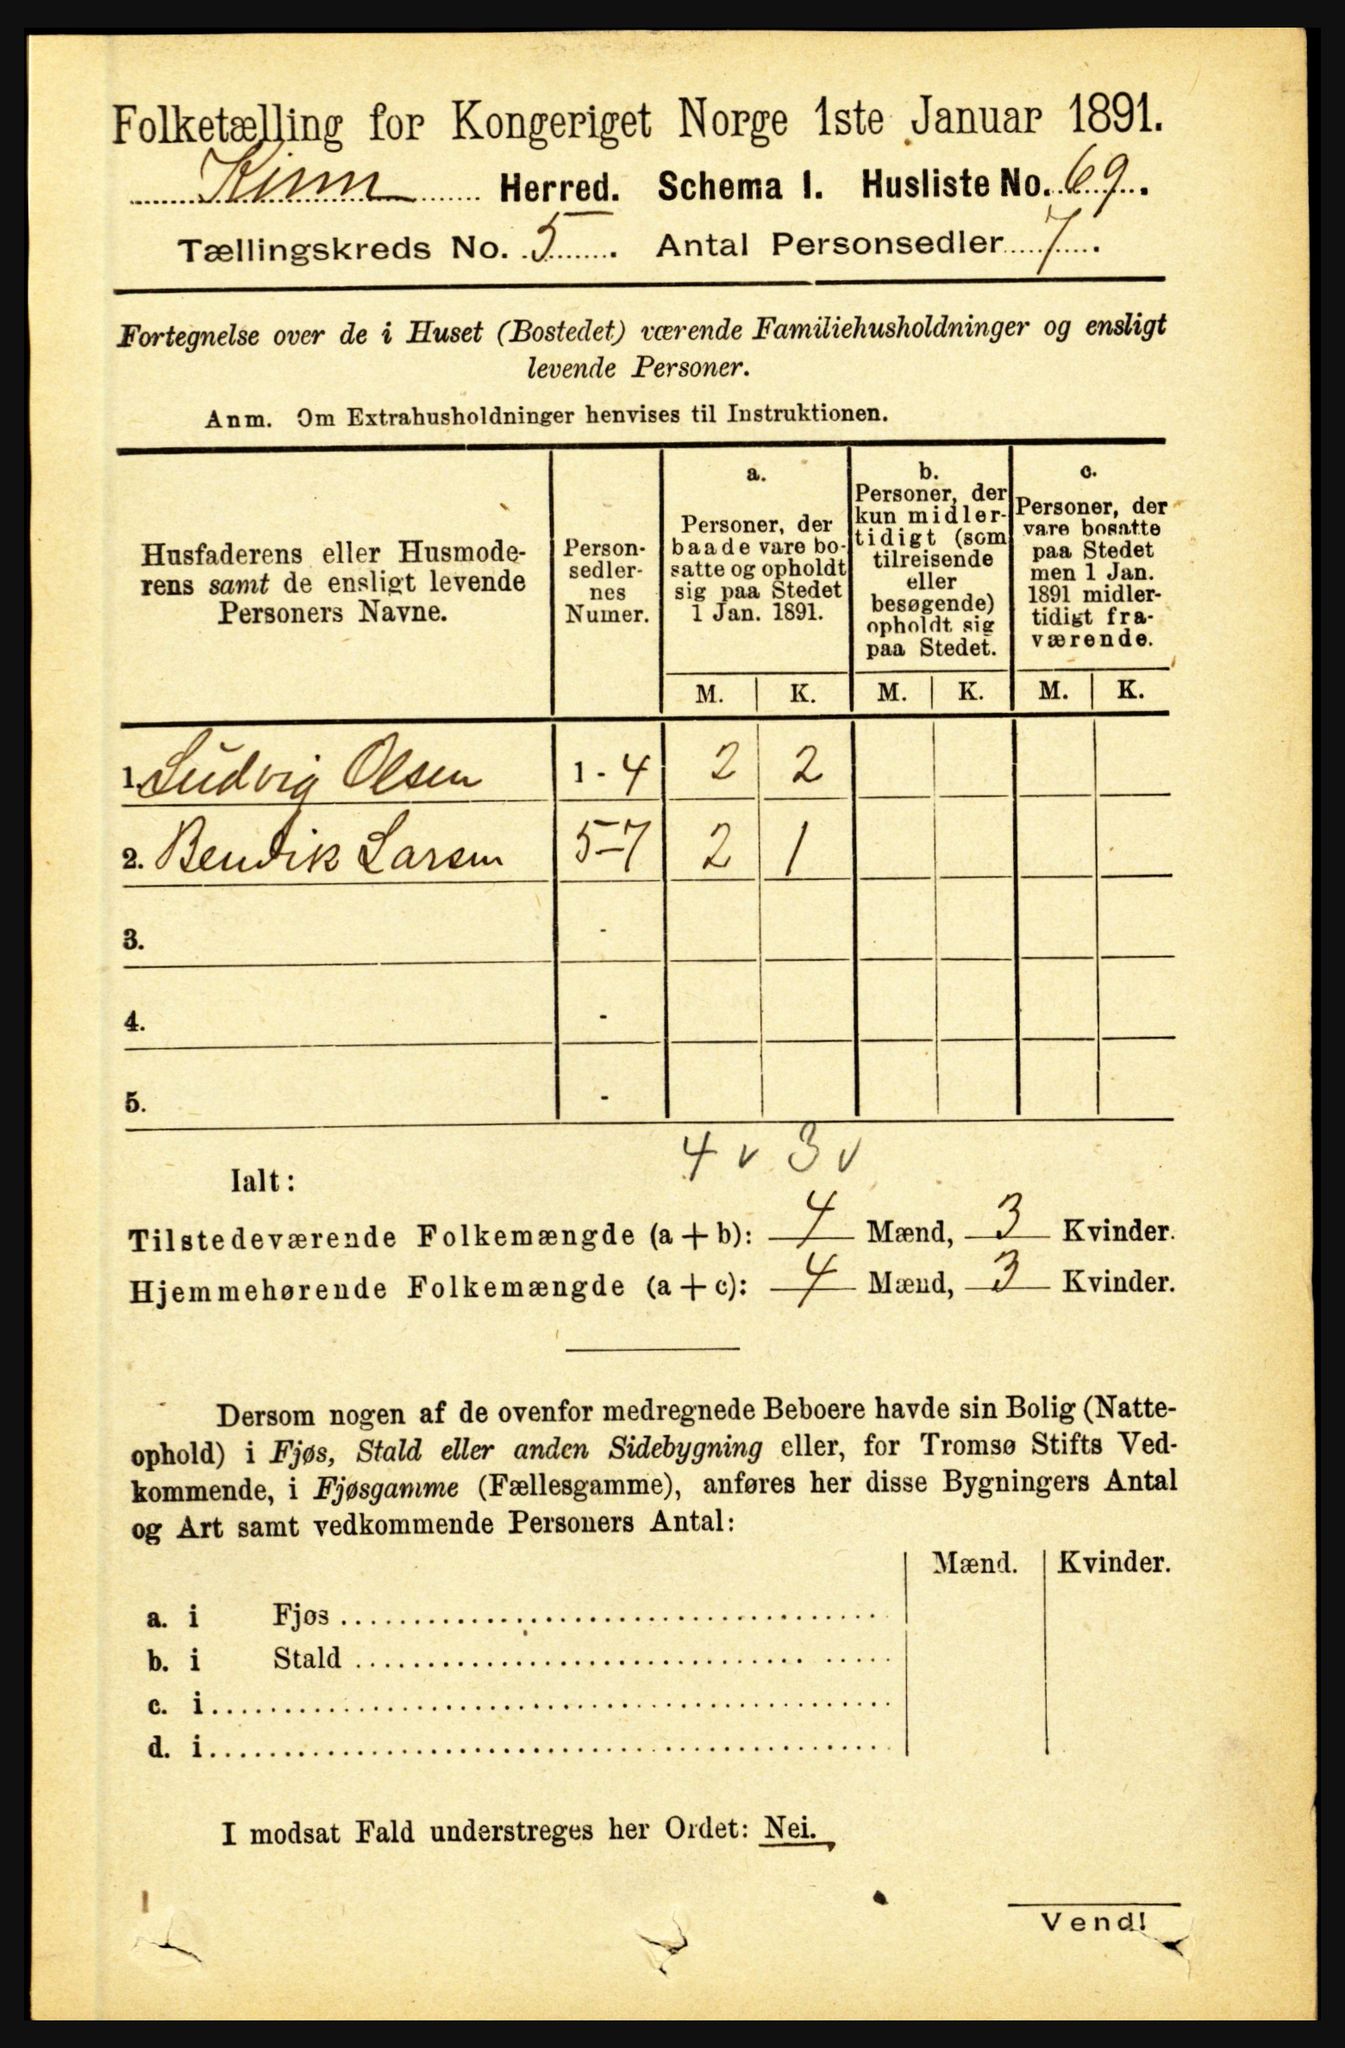 Folketælling for Kongeriget Norge 1ste Januar 1891.
Kinn Herred. Schema 1. Husliste No. 69.
Tællingskreds No. 5. Antal Personsedler 7.
Fortegnelse over de i Huset (Bostedet) værende Familiehusholdninger og ensligt
levende Personer.
Anm. Om Extrahusholdninger henvises til Instruktionen.
Husfaderens eller Husmode-
rens samt de ensligt levende
Personers Navne.
Person-
sedler-
nes
Numer.
a.
Personer, der
baade vare bo-
satte og opholdt
sig paa Stedet
1 Jan. 1891.
b.
Personer, der
kun midler-
tidigt (som
tilreisende
eller
besøgende)
opholdt sig
paa Stedet.
c.
Personer, der
vare bosatte
paa Stedet
men 1 Jan.
1891 midler-
tidigt fra-
værende.
M. K. M. K. M. K.
1. Ludvig Olsen 1 - 4 2 2
2. Bendik Larsen 5-7 2 1
3. -
4. -
5. -
4 v 3 v
Ialt:
Tilstedeværende Folkemængde (a + b): 4 Mænd, 3 Kvinder.
Hjemmehørende Folkemængde (a + c): 4 Mænd, 3 Kvinder.
Dersom nogen af de ovenfor medregnede Beboere havde sin Bolig (Natte-
ophold) i Fjøs, Stald eller anden Sidebygning eller, for Tromsø Stifts Ved-
kommende, i Fjøsgamme (Fællesgamme), anføres her disse Bygningers Antal
og Art samt vedkommende Personers Antal:
Mænd. Kvinder.
a. i Fjøs
b. i Stald
c. i
d. i
I modsat Fald understreges her Ordet: Nei.
Vend!